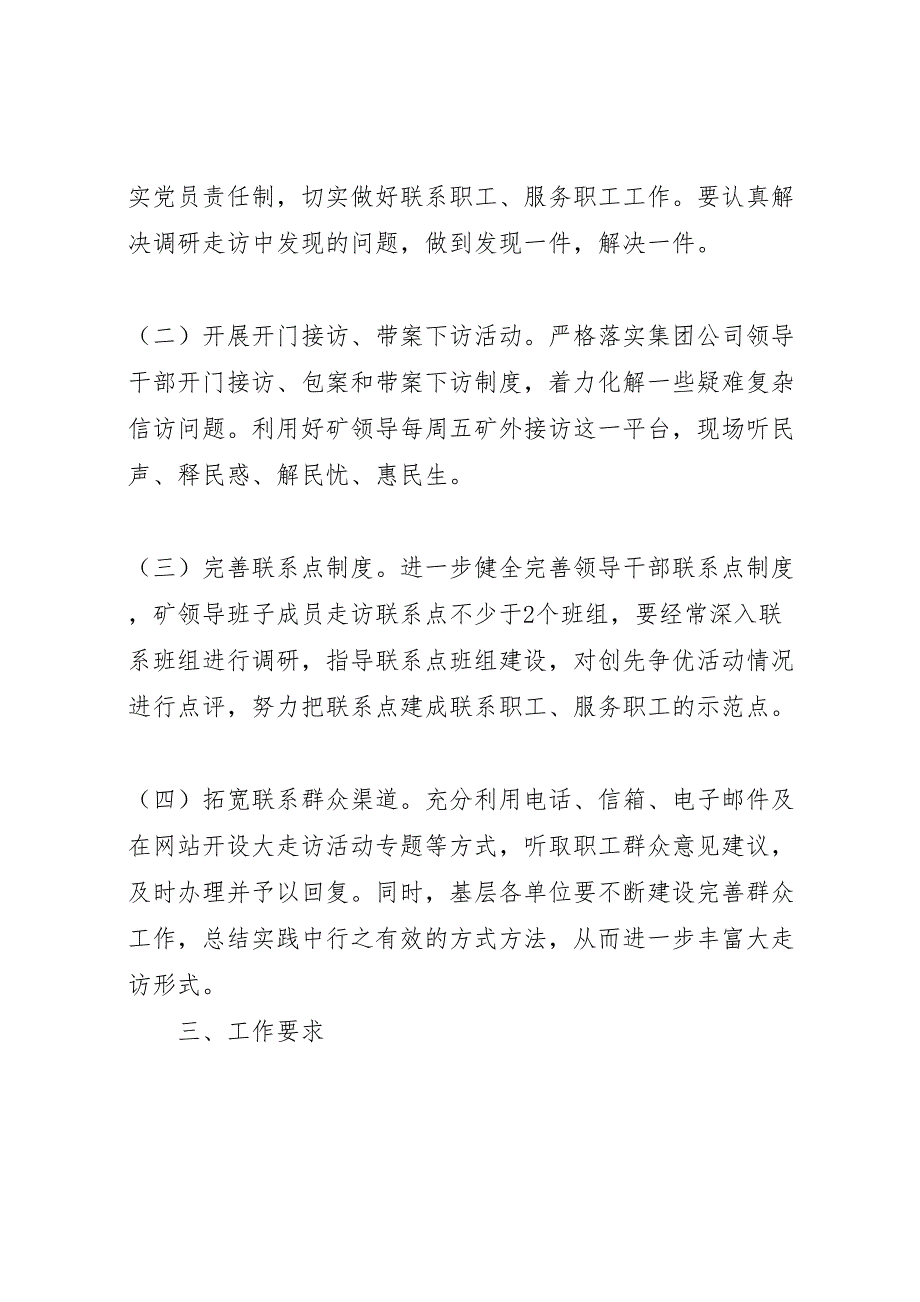 实党员责任制，切实做好联系职工、服务职工工作。要认真解
决调研走访中发现的问题，做到发现一件，解决一件。
（二）开展开门接访、带案下访活动。严格落实集团公司领导
干部开门接访、包案和带案下访制度，着力化解一些疑难复杂
信访问题。利用好矿领导每周五矿外接访这一平台，现场听民
声、释民惑、解民忧、惠民生。
（三）完善联系点制度。进一步健全完善领导干部联系点制度
，矿领导班子成员走访联系点不少于2个班组，要经常深入联
系班组进行调研，指导联系点班组建设，对创先争优活动情况
进行点评，努力把联系点建成联系职工、服务职工的示范点。
（四）拓宽联系群众渠道。充分利用电话、信箱、电子邮件及
在网站开设大走访活动专题等方式，听取职工群众意见建议，
及时办理并予以回复。同时，基层各单位要不断建设完善群众
工作，总结实践中行之有效的方式方法，从而进一步丰富大走
访形式。
三、工作要求